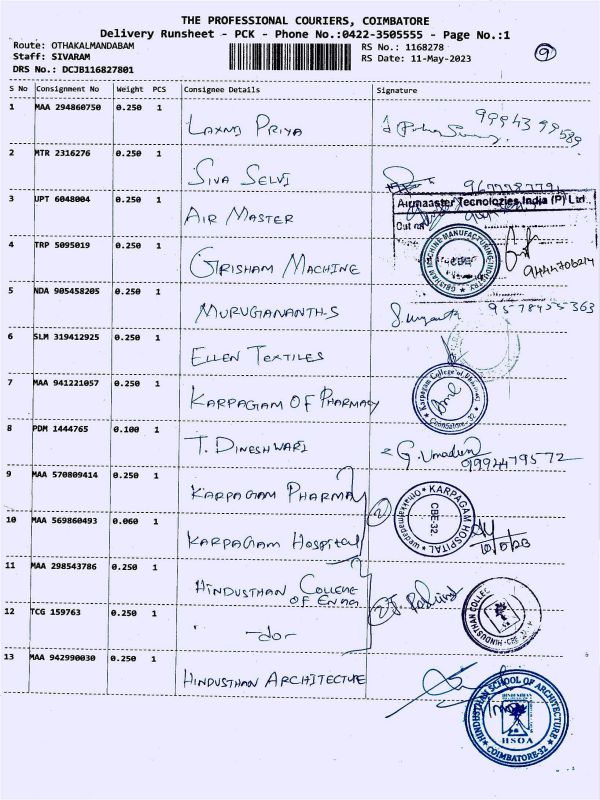 THE PROFESSIONAL COURIERS, COIMBATORE
Delivery Runsheet - PCK - Phone No.:0422-3505555 - Page No.:1
Route: OTHAKALMANDABAM
RS No.: 1168278
9
Staff: SIVARAM
RS Date: 11-May-2023
DRS No.: DCJB116827801
S No Consignment No Weight PCS Consignee Details Signature
1 MAA 294860750 0.250 1 LAXMI PRIYA 9994399589
2 MTR 2316276 0.250 1 SIVA SELVI
Airmaaster Tecnolozies India (P) Ltd.
3 UPT 6048004 0.250 1 AIR MASTER
4 TRP 5095019 0.250 1 GRISHAM MACHINE
GRISHAM MACHINE MANUFACTURING INDUSTRY
5 NDA 905458205 0.250 1 MURUGANANTH-S 9578955363
6 SLM 319412925 0.250 1 ELLEN TEXTILES
7 MAA 941221057 0.250 1 KARPAGAM OF PHARMACY
Karpagam College of Pharmacy
Coimbatore-32
8 PDM 1444765 0.100 1 T. DINESHWARI G. Umadevi
9994479572
9 MAA 570809414 0.250 1 KARPAGAM PHARMACY
2
KARPAGAM HOSPITAL
CBE-32.
10 MAA 569860493 0.060 1 KARPAGAM HOSPITAL
11 MAA 298543786 0.250 1 HINDUSTHAN COLLEGE
OF ENGG
2
12 TCG 159763 0.250 1 -do-
13 MAA 942990030 0.250 1 HINDUSTHAN ARCHITECTURE
HINDUSTHAN SCHOOL OF ARCHITECTURE
HSOA
COIMBATORE-32